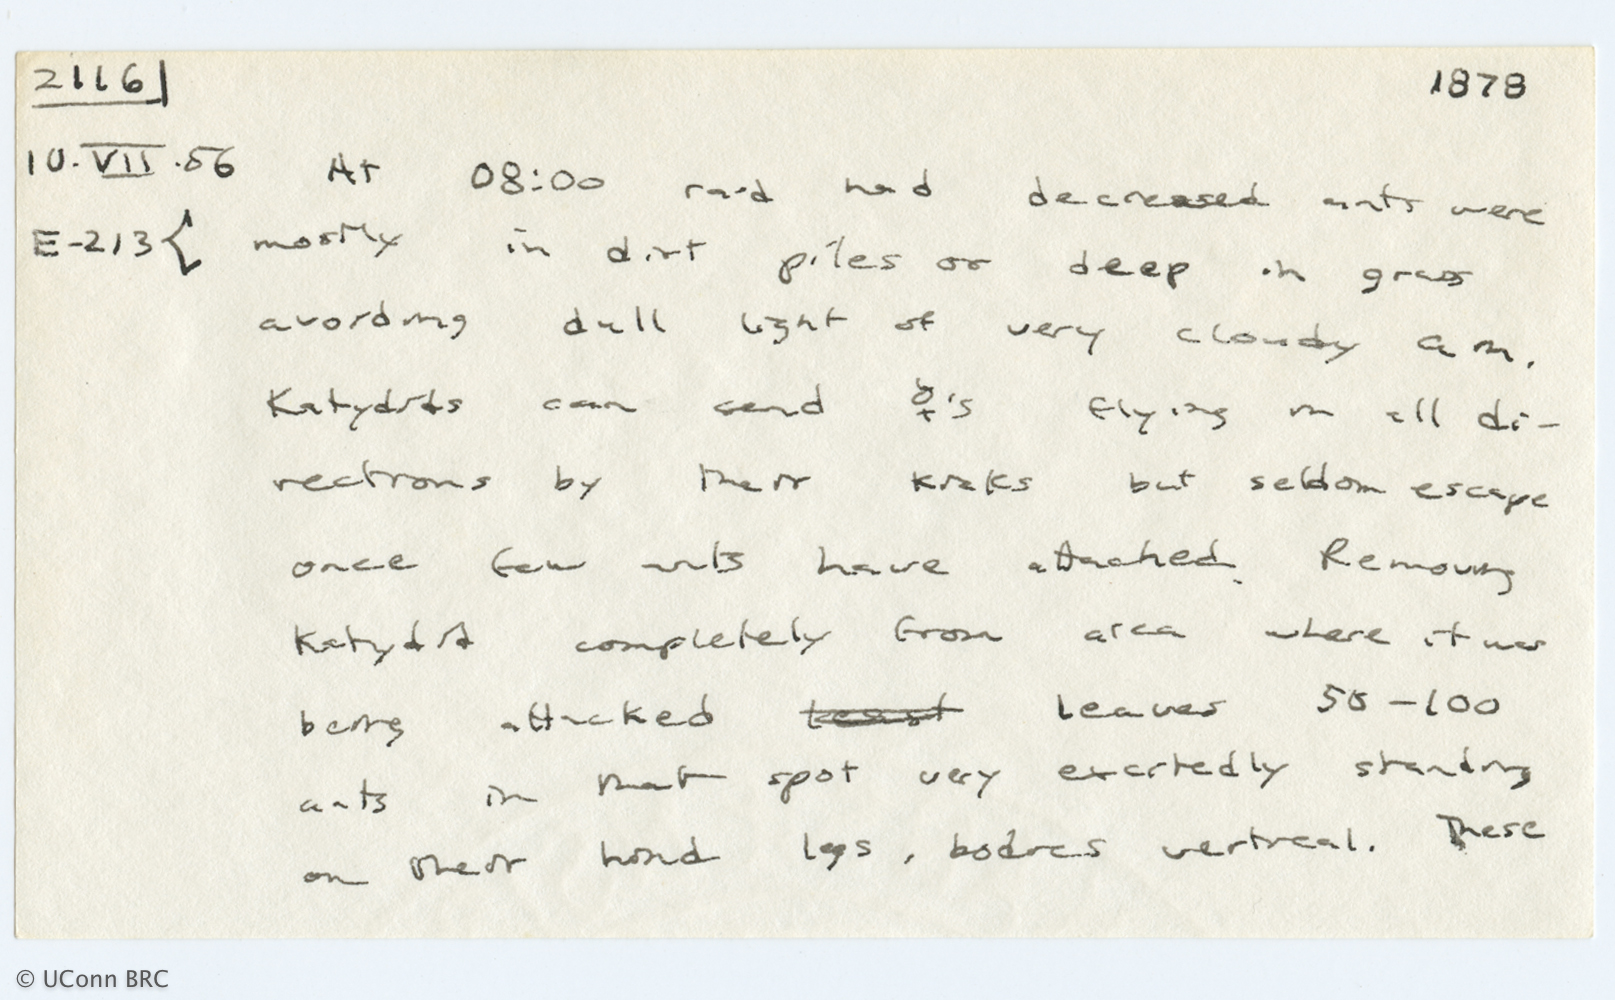 2116 1878
10.VII.56 At 08:00 raid had decreased ants were
E-213 { mostly in dirt piles or deep in grass
avoiding dull light of very cloudy am.
Katydids can send ☿'s flying in all di-
rections by their kicks but seldom escape
once few ants have attached. Removing
Katydid completely from area where it was
being attacked leaves 50-100
ants in that spot very excitedly standing
on their hind legs, bodies vertical. These
© UConn BRC